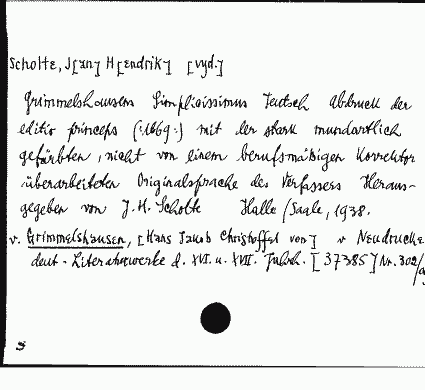 Scholte, J[an] H[endrik] [vyd.]
Grimmelshausens Simplicissimus Teutsch Abdruck der
editio princeps (:1669:) mit der stark mundartlich
gefärbten, nicht von einem berufsmäßigen Korrektor
überarbeiteten Originalsprache des Verfassers Heraus-
gegeben von J.H. Scholte Halle/Saale, 1938.
v. Grimmelshausen, [Hans Jacob Christoffel von] v Neudrucke
deut. Literaturwerke d. XVI. u. XVII. Jahrh. [37385] Nr. 302/